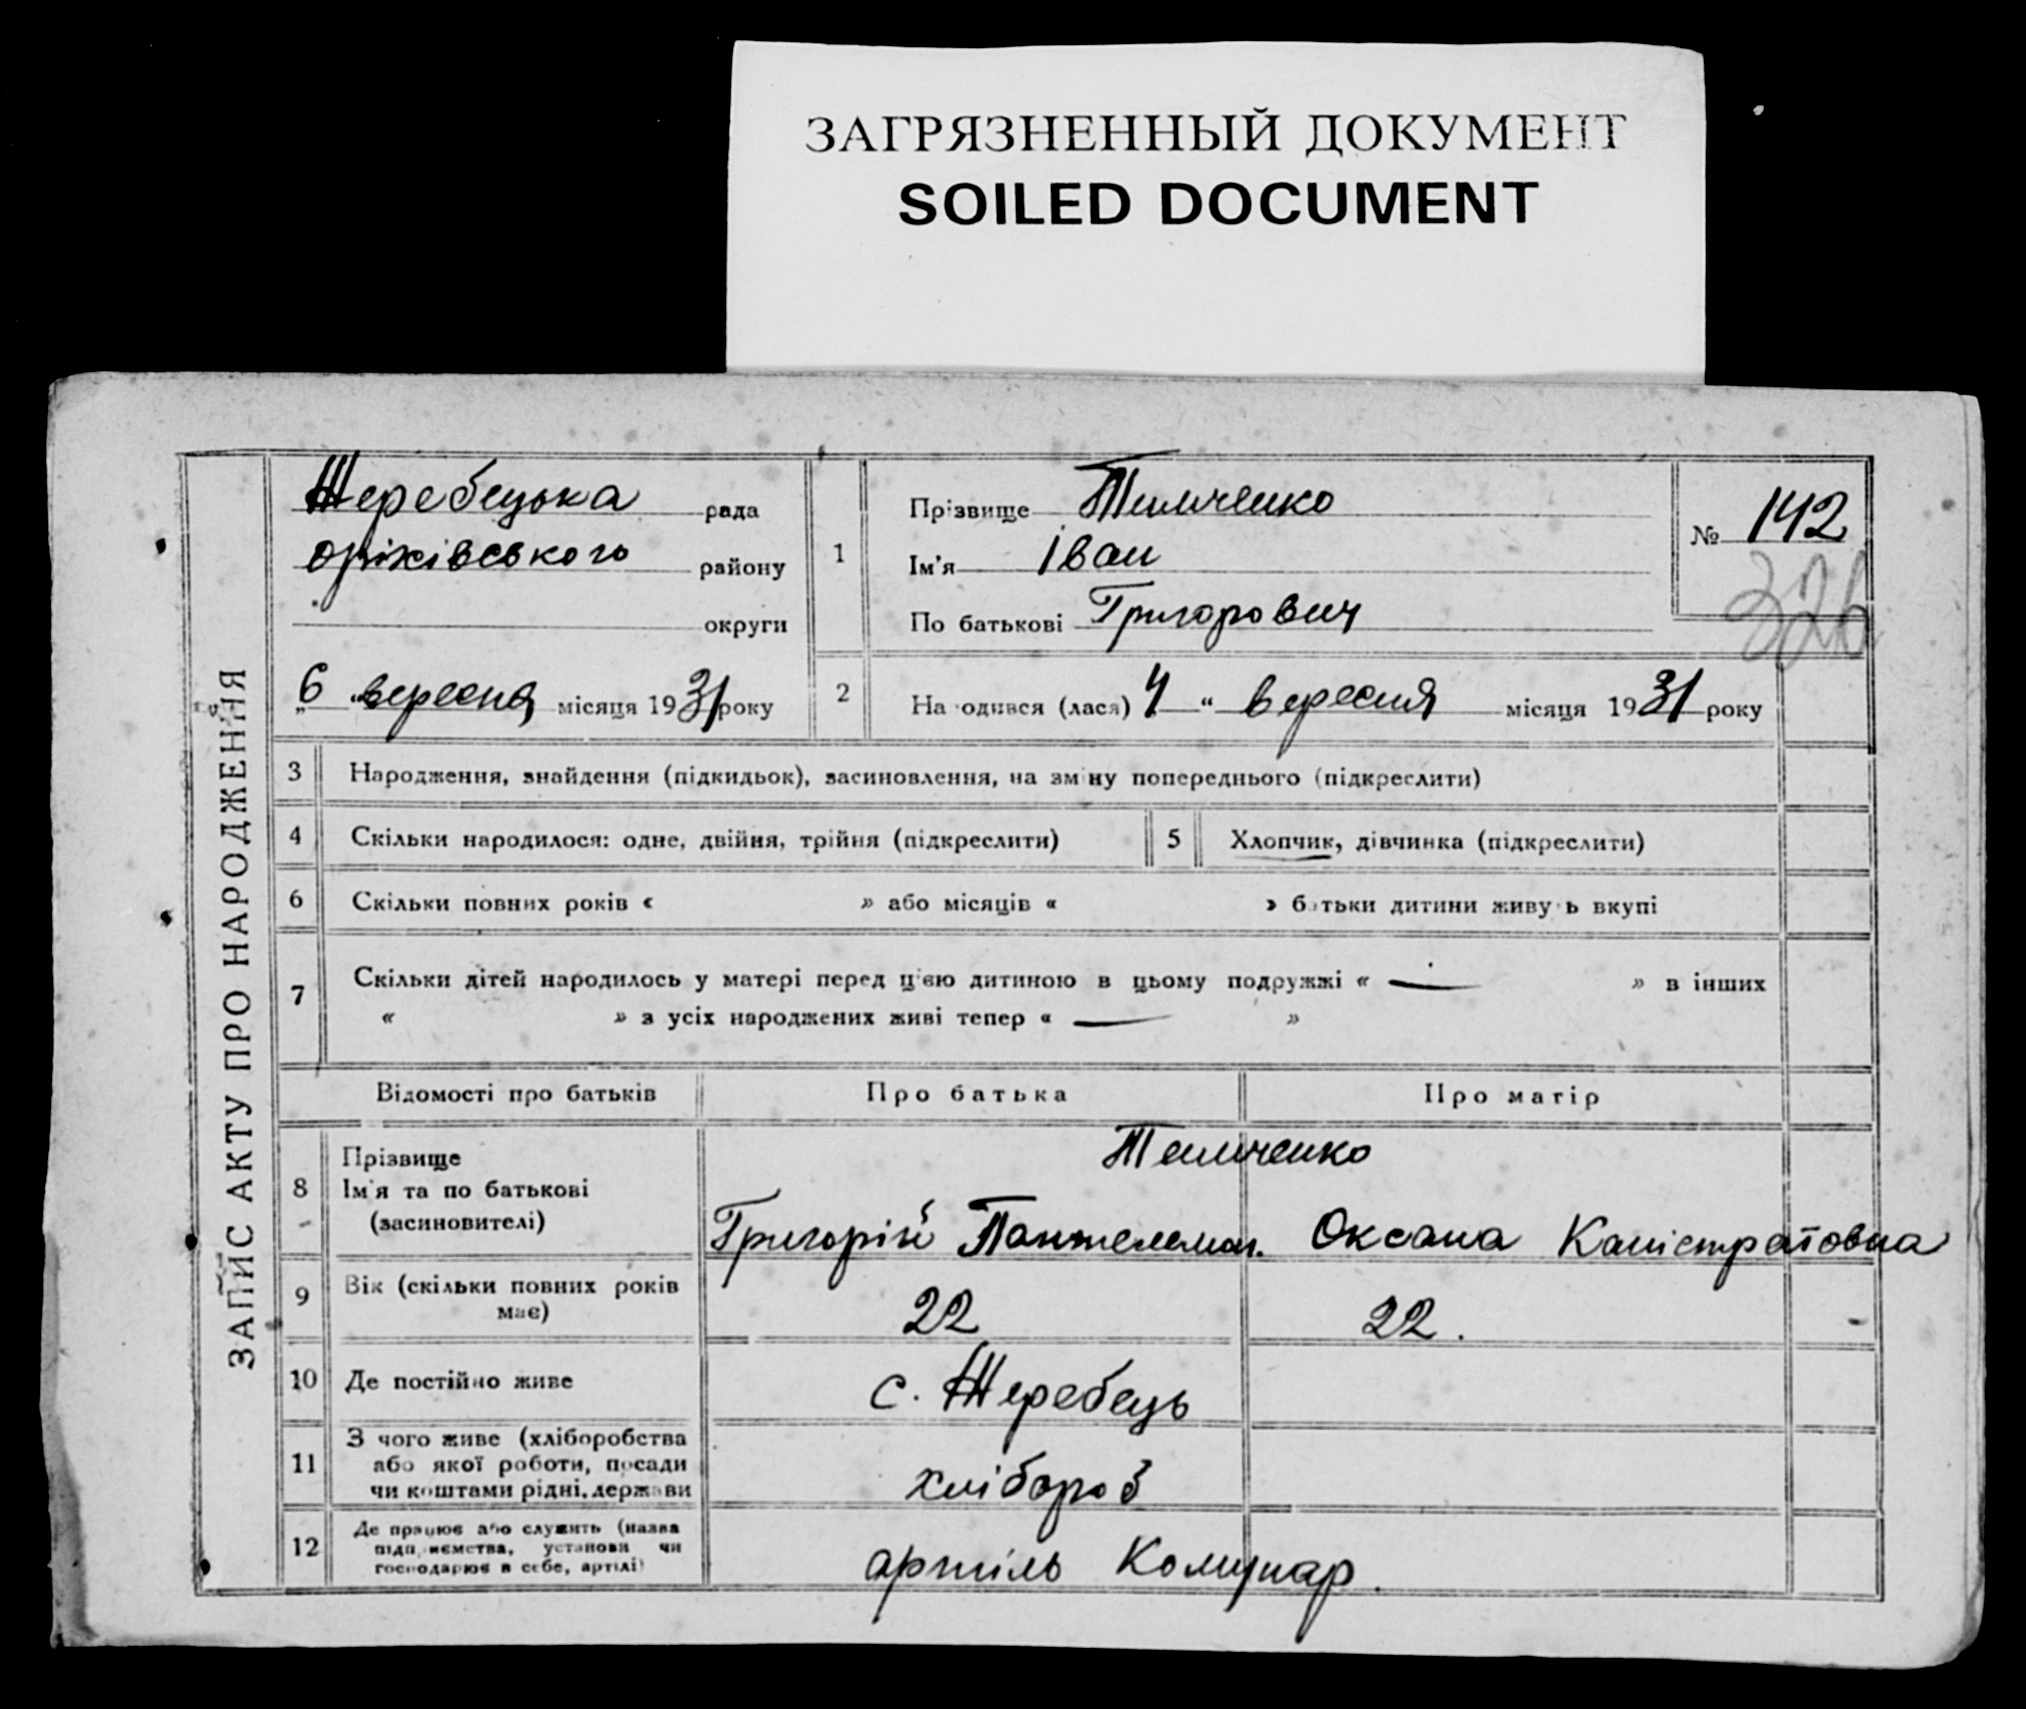 ЗАГРЯЗНЕННЫЙ ДОКУМЕНТ
SOILED DOCUMENT
ЗАПИС АКТУ ПРО НАРОДЖЕННЯ
Жеребецька рада
оріхівського району
округи
„6“ вересня місяця 1931 року
1
Прізвище Тимченко
Ім'я Іван
По батькові Григорович
№ 142
326
2
Народився (лася) 4 “ вересня місяця 1931 року
3 Народження, знайдення (підкидьок), засиновлення, на зміну попереднього (підкреслити)
4 Скільки народилося: одне, двійня, трійня (підкреслити)
5 Хлопчик, дівчинка (підкреслити)
6 Скільки повних років « » або місяців « » батьки дитини живуть вкупі
7 Скільки дітей народилось у матері перед цією дитиною в цьому подружжі « — » в інших
« » з усіх народжених живі тепер « — »
Відомості про батьків Про батька Про матір
8 Прізвище
Ім'я та по батькові
(засиновителі)
Тимченко
Григорій Пантелемон. Оксана Каністратовна
9 Вік (скільки повних років
має)
22 22.
10 Де постійно живе с. Жеребець
11 З чого живе (хліборобства
або якої роботи, посади
чи коштами рідні, держави
хлібороб
12 Де працює або служить (назва
підприємства, установи чи
господарює в себе, артілі)
артіль Комунар.